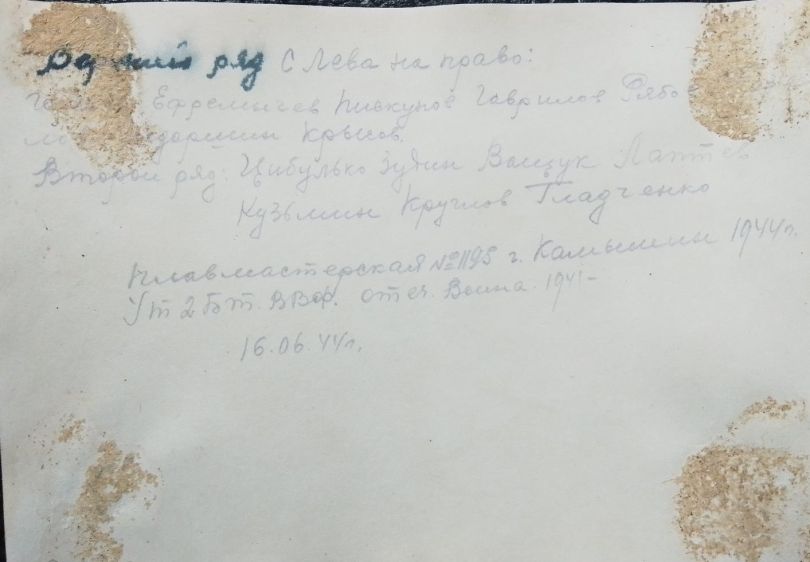 Верхний ряд С Лева на право:
Ефремычев Пискунов Гаврилов Рябо
Крысов.
Второй ряд: Цибулько Зудин Ващук Лаптев
Кузьмин Круглов Гладченко
Плавмастерская №1195 г. Камышин 1944г.
Ут 2 Бт. ВВФ. отеч. Воина. 1941-
16.06.44г.